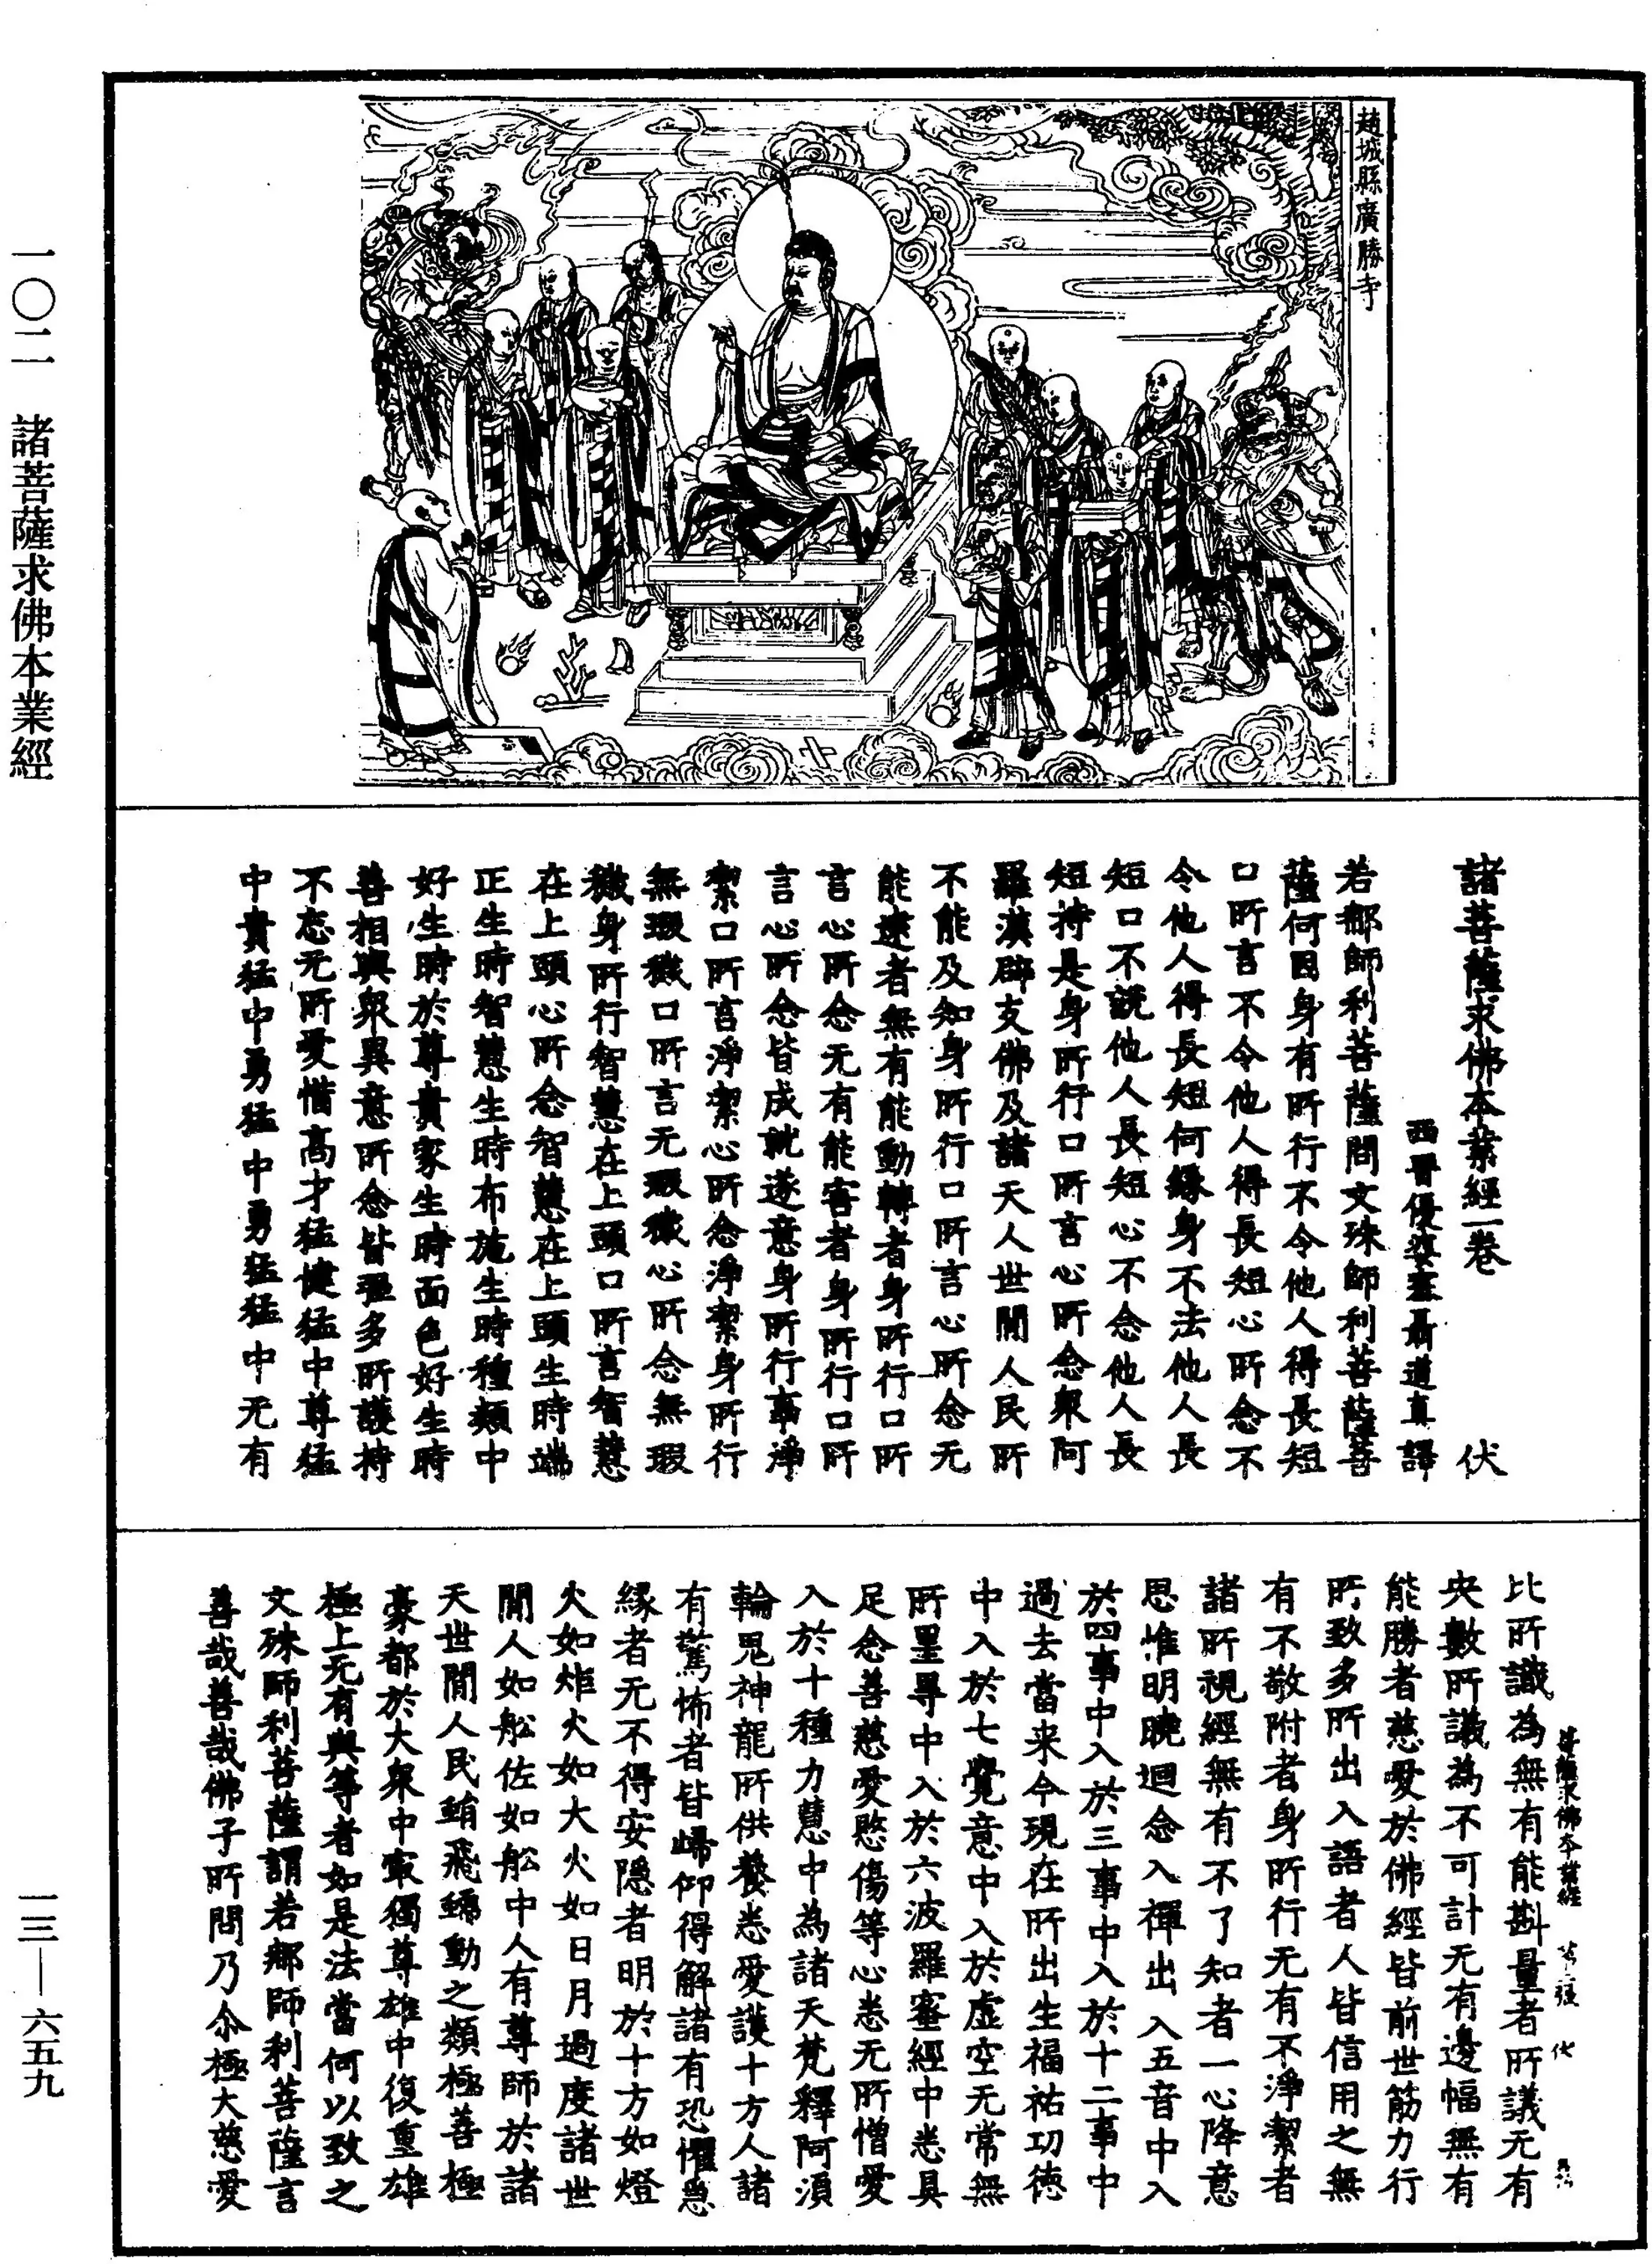 趙城縣廣勝寺
一〇二　諸菩薩求佛本業經
諸菩薩求佛本業經一卷　伏
西晉優婆塞聶道真譯
若那師利菩薩問文殊師利菩薩菩
薩何因身有所行不令他人得長短
口所言不令他人得長短心所念不
令他人得長短何緣身不法他人長
短口不說他人長短心不念他人長
短持是身所行口所言心所念衆阿
羅漢辟支佛及諸天人世間人民所
不能及知身所行口所言心所念无
能逮者無有能動轉者身所行口所
言心所念无有能害者身所行口所
言心所念皆成就遂意身所行事淨
潔口所言淨潔心所念淨潔身所行
無瑕穢口所言无瑕穢心所念無瑕
穢身所行智慧在上頭口所言智慧
在上頭心所念智慧在上頭生時端
正生時智慧生時布施生時種類中
好生時於尊貴家生時面色好生時
善相與衆異意所念皆強多所護持
不忘无所愛惜高才猛健猛中尊猛
中貴猛中勇猛中勇猛猛中无有
比所識為無有能斟量者所議无有
央數所議為不可計无有邊幅無有
能勝者慈愛於佛經皆前世筋力行
所致多所出入語者人皆信用之無
有不敬附者身所行无有不淨潔者
諸所視經無有不了知者一心降意
思惟明曉迴念入禪出入五音中入
於四事中入於三事中入於十二事中
過去當来今現在所出生福祐功德
中入於七覺意中入於虛空无常無
所罣㝵中入於六波羅蜜經中悉具
足念善慈愛愍傷等心悉无所憎愛
入於十種力慧中為諸天梵釋阿須
輪鬼神龍所供養悉愛護十方人諸
有驚怖者皆歸仰得解諸有恐懼急
緣者无不得安隱者明於十方如燈
火如炬火如大火如日月過度諸世
間人如舩佐如舩中人有尊師於諸
天世間人民蜎飛蠕動之類極善極
豪都於大衆中㝡獨尊雄中復重雄
極上无有與等者如是法當何以致之
文殊師利菩薩謂若那師利菩薩言
善哉善哉佛子所問乃尒極大慈愛
菩薩求佛本業經
一三—六五九